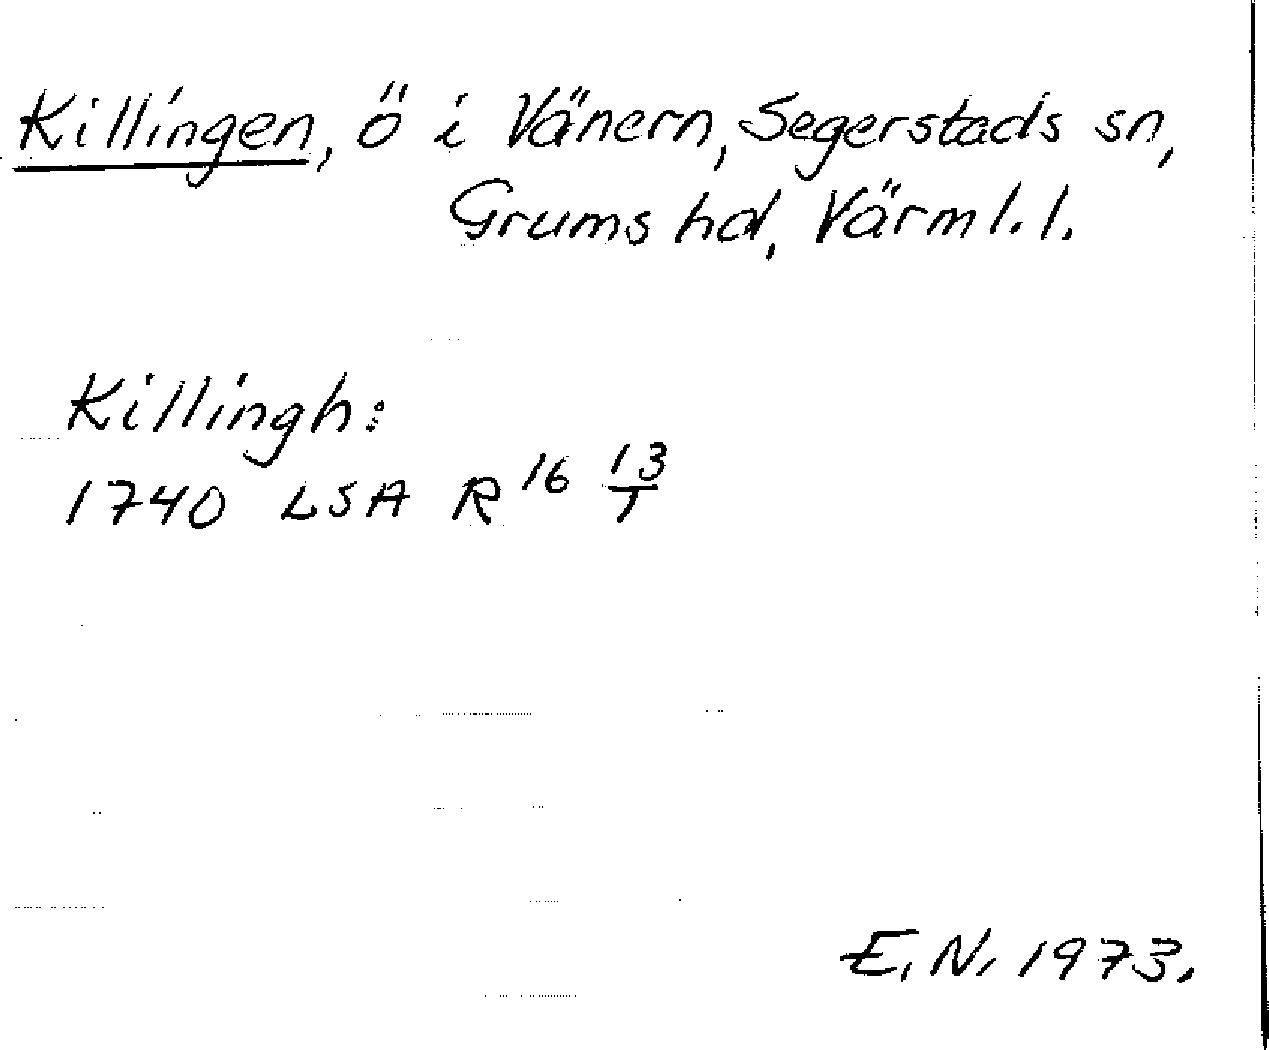 Killingen, ö i Vänern, Segerstads sn,
Grums hd, Värml. l.
Killingh:
1740 LSA R 16 13/1
E. N. 1973.